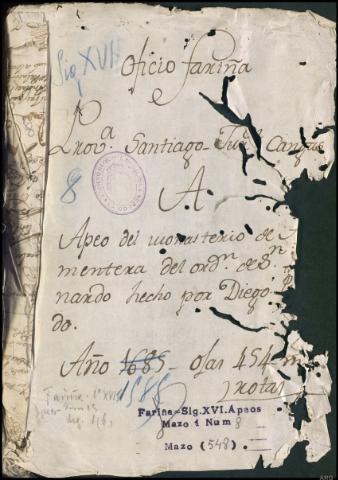 Sig XVI
Oficio fariña
e
Prov.ª Santiago - Jur.ⁿ Cangas
8
A
Apeo del monasterio de
mentera del ordⁿ. de Sⁿ
nardo hecho por Diego
do.
Año 1685 - ojas 454
1588
(rota)
Fariña-Sig.XVI.Apeos
Mazo 1 Num 8
Mazo (548).